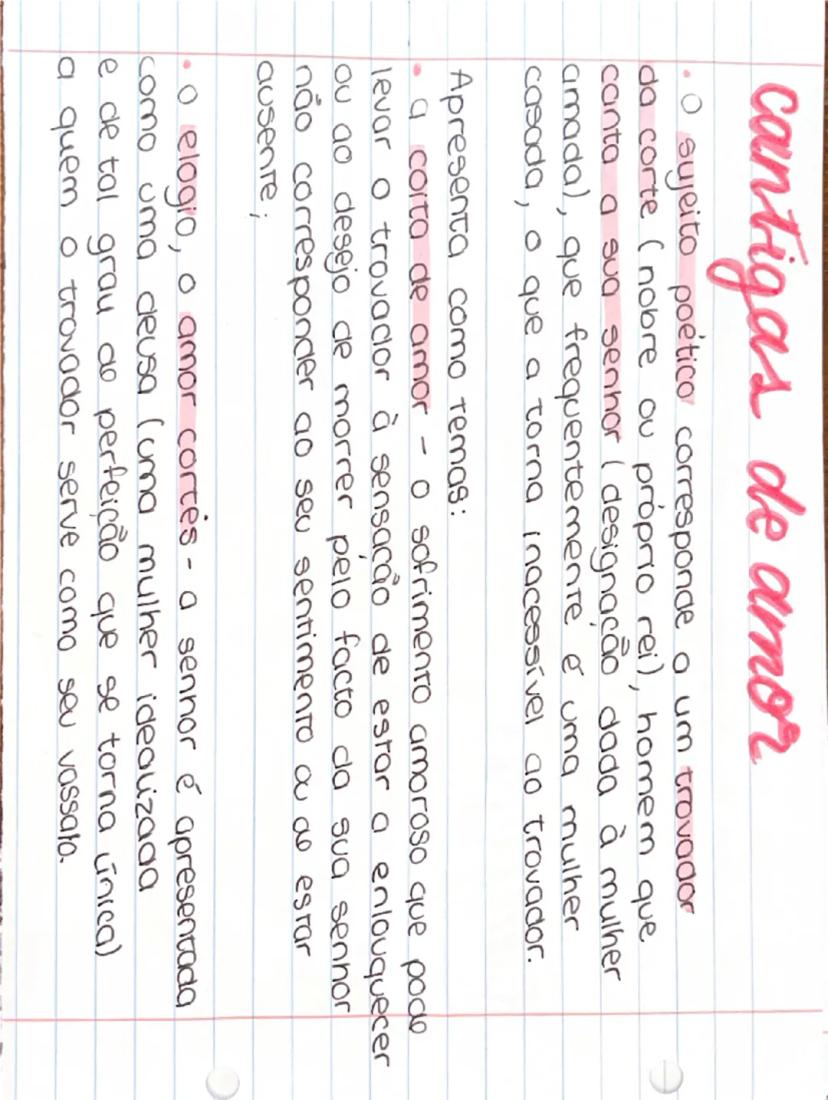 cantigas de amor
• O sujeito poético corresponde a um trovador
da corte (nobre ou próprio rei), homem que
canta a sua senhor (designação dada à mulher
amada), que frequentemente é uma mulher
casada, o que a torna inacessível ao trovador.
Apresenta como temas:
• a coita de amor - o sofrimento amoroso que pode
levar o trovador à sensação de estar a enlouquecer
ou ao desejo de morrer pelo facto da sua senhor
não corresponder ao seu sentimento ou de estar
ausente;
• o elogio, o amor cortês - a senhor é apresentada
como uma deusa (uma mulher idealizada
e de tal grau de perfeição que se torna única)
a quem o trovador serve como seu vassalo.